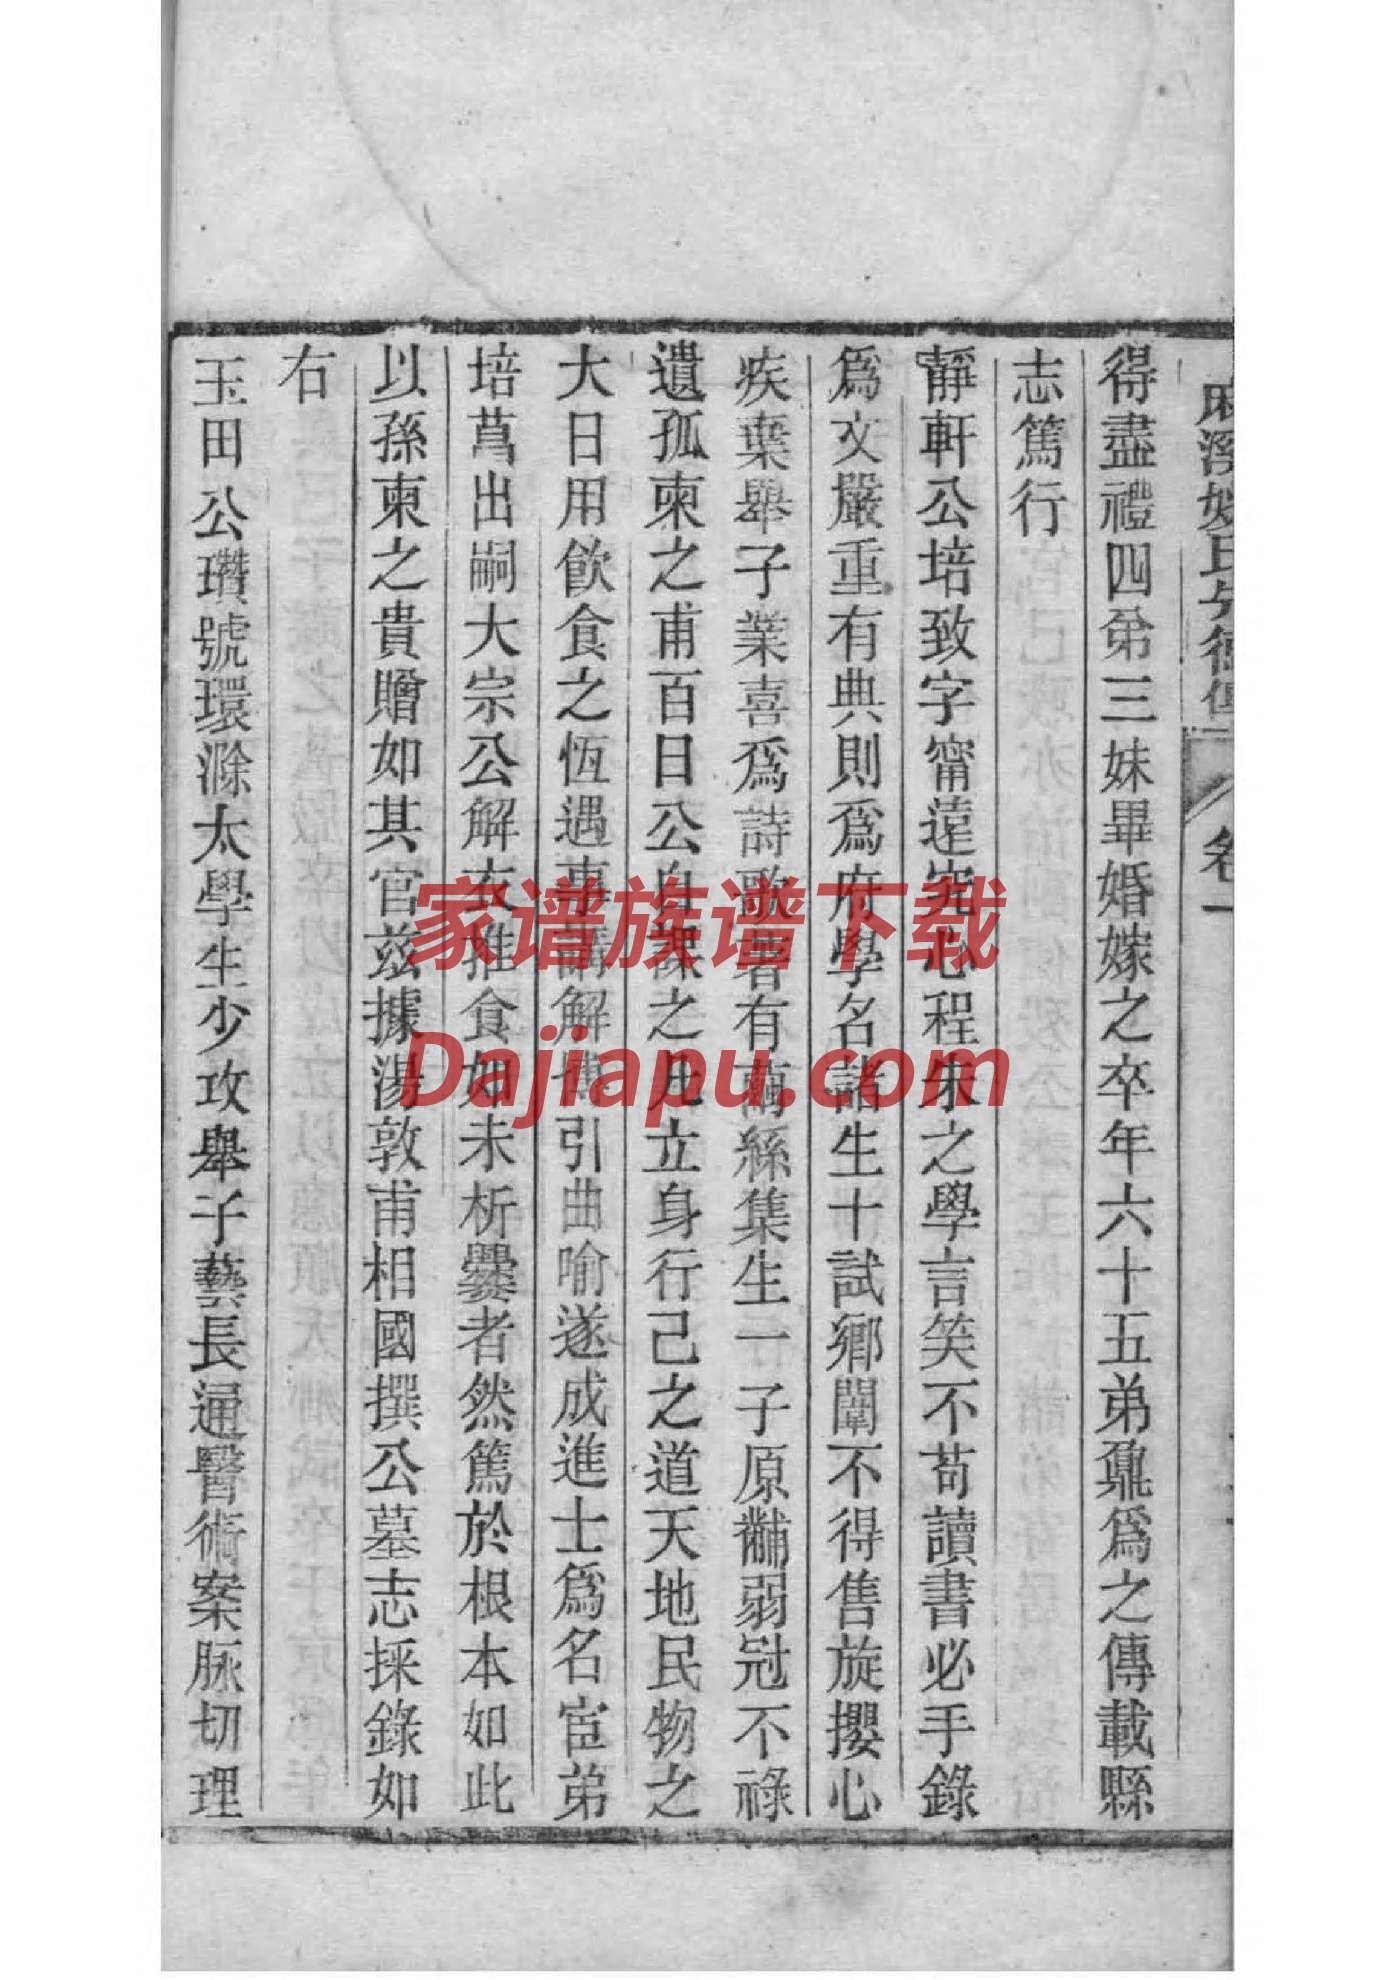 麻溪姚氏先德傳 卷一
得盡禮四弟三妹畢婚嫁之卒年六十五弟鼐爲之傳載縣
志篤行
靜軒公培致字甯遠究心程朱之學言笑不苟讀書必手錄
爲文嚴重有典則爲府學名諸生十試鄉闈不得售旋攖心
疾棄舉子業喜爲詩歌著有繭絲集生一子原黼弱冠不祿
遺孤柬之甫百日公自課之凡立身行己之道天地民物之
大日用飲食之恆遇事講解博引曲喻遂成進士爲名宦弟
培菖出嗣大宗公解衣推食如未析爨者然篤於根本如此
以孫柬之貴贈如其官茲據湯敦甫相國撰公墓志採錄如
右
玉田公瓚號環滁太學生少攻舉子藝長通醫術案脈切理
家谱族谱下载
Dajiapu.com